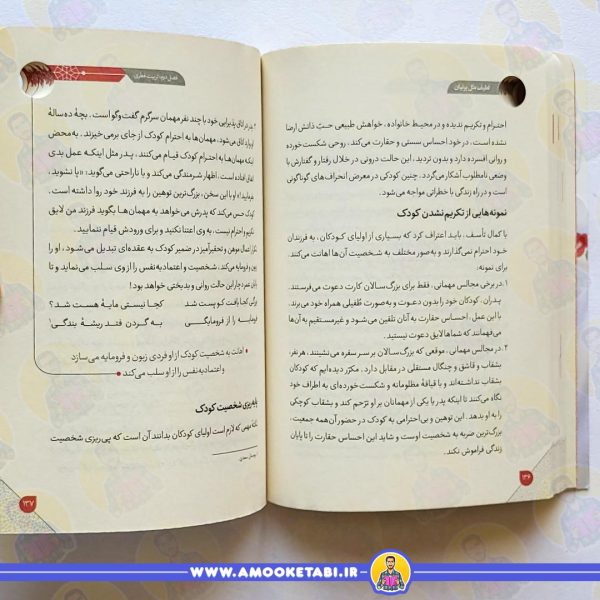 لطیف مثل پرنیان
احترام و تکریم ندیده و در محیط خانواده، خواهش طبیعی حبّ ذاتش ارضا
نشده است، در خود احساس سستی و حقارت می‌کند، روحی شکست‌خورده
و روانی افسرده دارد و بدون تردید، این حالت درونی در خلال رفتار و گفتارش با
وضعی نامطلوب آشکار می‌گردد. چنین کودکی در معرض انحراف‌های گوناگونی
است و در راه زندگی با خطراتی مواجه می‌شود.
نمونه‌هایی از تکریم نشدن کودک
با کمال تأسف، باید اعتراف کرد که بسیاری از اولیای کودکان، به فرزندان
خود احترام نمی‌گذارند و به‌صور مختلف به شخصیت آن‌ها اهانت می‌کنند.
برای نمونه:
۱. در برخی مجالس مهمانی، فقط برای بزرگ‌سالان کارت دعوت می‌فرستند.
پدران، کودکان خود را بدون دعوت و به‌صورت طُفیلی همراه خود می‌برند.
با این عمل، احساس حقارت به آنان تلقین می‌شود و غیرمستقیم به آن‌ها
می‌فهمانند که شما لایق دعوت نیستید.
۲. در مجالس مهمانی، موقعی که بزرگ‌سالان بر سر سفره می‌نشینند، هر نفر،
بشقاب و قاشق و چنگال مستقلی در مقابل دارد. مکرّر دیده‌ایم که کودکان
بشقاب نداشته‌اند و با قیافهٔ مظلومانه و شکست‌خورده‌ای به اطراف خود
نگاه می‌کنند تا اینکه پدر یا یکی از مهمانان بر او ترحّم کند و بشقاب کوچکی
را به او بدهد. این توهین و بی‌احترامی به کودک در حضور آن همه جمعیت،
بزرگ‌ترین ضربه به شخصیت اوست و شاید این احساس حقارت را تا پایان
زندگی فراموش نکند.
۱۳۶
فصل دوم: تربیت فطری
پدر در اتاق پذیرایی خود با چند نفر مهمان سرگرم گفت‌وگو است. بچهٔ ده‌سالهٔ
او وارد اتاق می‌شود. مهمان‌ها به احترام کودک از جای برمی‌خیزند. به محض
اینکه مهمان‌ها به احترام کودک قیام می‌کنند، پدر مثل اینکه عمل بدی
اتفاق افتاده است، اظهار شرمندگی می‌کند و با ناراحتی می‌گوید: «پا نشوید،
بفرمایید!» او با این سخن، بزرگ‌ترین توهین را به فرزند خود روا داشته است.
کودک حس می‌کند که پدرش می‌خواهد به مهمان‌ها بگوید فرزند من لایق
تکریم و احترام نیست، به وی اعتنا نکنید و برای ورودش قیام ننمایید.
تکرار اعمال موهن و تحقیرآمیز در ضمیر کودک به عقده‌ای تبدیل می‌شود، او را
زبون و فرومایه می‌کند، شخصیت و اعتمادبه‌نفس را از وی سلب می‌نماید و تا
پایان عمر دچار این حالت روانی و بدبختی خواهد بود!
بزرگی کجا یافت کو پست شد کجا نیستی مایهٔ هست شد؟
فرومایه را از فرومایگی به گردن فتد ریشهٔ بندگی
اهانت به شخصیت کودک از او فردی زبون و فرومایه می‌سازد
و اعتمادبه‌نفس را از او سلب می‌کند.
پایه‌ریزی شخصیت کودک
نکتهٔ مهمی که لازم است اولیای کودکان بدانند آن است که پی‌ریزی شخصیت
۱۳۷
WWW.AMOOKETABI.IR